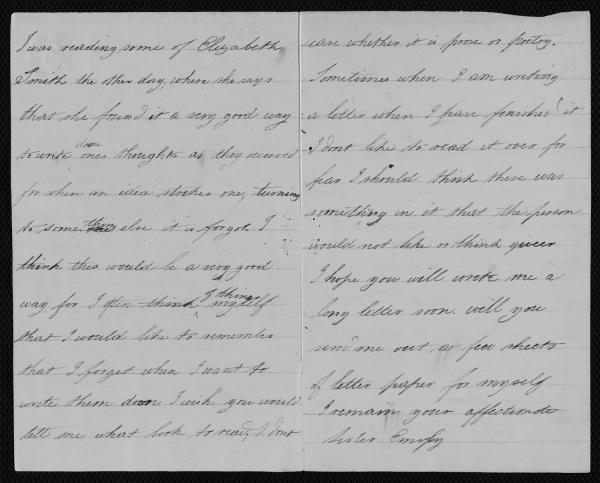 I was reading some of Elizabeth
Smith the other day, where she says
that she found it a very good way
to write down ones thoughts as they occured
for when an idea strikes one, turning
to something else it is forgot. I
think this would be a very good
way for I often think of things myself
that I would like to remember
that I forget when I want to
write them down. I wish you would
tell me what book to read, I dont
care whether it is prose or poetry.
Sometimes when I am writing
a letter when I have finished it
I dont like to read it over for
fear I should think there was
something in it that the person
would not like or think queer
I hope you will write me a
long letter soon. will you
send me out a few sheets
of letter paper for myself
I remain your affectionate
sister